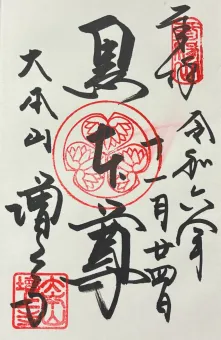 奉拝
令和六年
十一月廿四日
黒本尊
大本山
増上寺